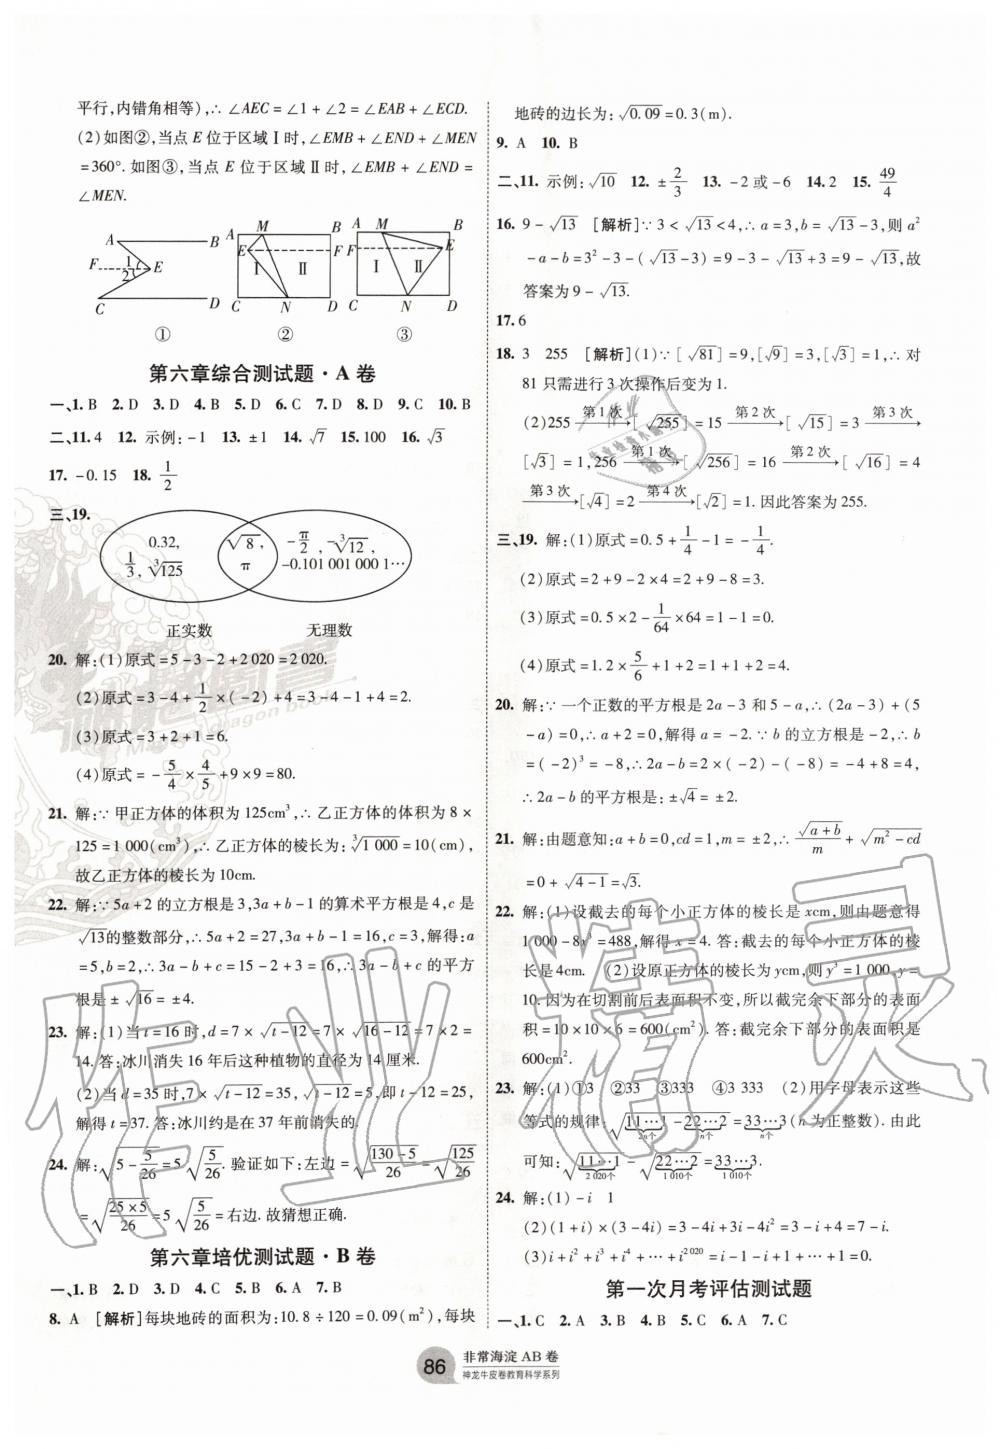 平行,内错角相等),∴ ∠AEC = ∠1 + ∠2 = ∠EAB + ∠ECD.
(2)如图②,当点 E 位于区域 Ⅰ 时,∠EMB + ∠END + ∠MEN
=360°. 如图③,当点 E 位于区域 Ⅱ 时,∠EMB + ∠END =
∠MEN.
A B F 1 2 E C D
①
A M B E F Ⅰ Ⅱ C N D
②
A M B F E Ⅰ Ⅱ C N D
③
第六章综合测试题·A 卷
一、1. B 2. D 3. D 4. B 5. D 6. C 7. D 8. D 9. C 10. B
二、11. 4 12. 示例: -1 13. ±1 14. √7 15. 100 16. √3
17. -0.15 18. 1/2
三、19.
0.32, 1/3, ∛125
√8, π
-π/2, -∛12, -0.101 001 000 1…
正实数 无理数
20. 解:(1)原式 = 5 - 3 - 2 + 2 020 = 2 020.
(2)原式 = 3 - 4 + 1/2 × (-2) + 4 = 3 - 4 - 1 + 4 = 2.
(3)原式 = 3 + 2 + 1 = 6.
(4)原式 = -5/4 × 4/5 + 9 × 9 = 80.
21. 解:∵ 甲正方体的体积为 125cm³,∴ 乙正方体的体积为 8 ×
125 = 1 000(cm³),∴ 乙正方体的棱长为:∛1 000 = 10(cm),
故乙正方体的棱长为 10cm.
22. 解:∵ 5a + 2 的立方根是 3,3a + b - 1 的算术平方根是 4,c 是
√13的整数部分,∴ 5a + 2 = 27,3a + b - 1 = 16,c = 3,解得:a
= 5,b = 2,∴ 3a - b + c = 15 - 2 + 3 = 16,∴ 3a - b + c 的平方
根是 ± √16 = ±4.
23. 解:(1)当 t = 16 时,d = 7 × √(t-12) = 7 × √(16-12) = 7 × 2 =
14. 答:冰川消失 16 年后这种植物的直径为 14 厘米.
(2)当 d = 35 时,7 × √(t-12) = 35,√(t-12) = 5,即 t - 12 = 25,
解得 t = 37. 答:冰川约是在 37 年前消失的.
24. 解:√(5 - 5/26) = 5√(5/26). 验证如下:左边 = √((130-5)/26) = √(125/26)
= √((25×5)/26) = 5√(5/26) = 右边. 故猜想正确.
第六章培优测试题·B 卷
一、1. B 2. D 3. D 4. C 5. B 6. A 7. B
8. A [解析]每块地砖的面积为:10.8 ÷ 120 = 0.09(m²),每块
地砖的边长为:√0.09 = 0.3(m).
9. A 10. B
二、11. 示例:√10 12. ±2/3 13. -2 或 -6 14. 2 15. 49/4
16. 9 - √13 [解析]∵ 3 < √13 < 4,∴ a = 3,b = √13 - 3,则 a²
- a - b = 3² - 3 - (√13 - 3) = 9 - 3 - √13 + 3 = 9 - √13,故
答案为 9 - √13.
17. 6
18. 3 255 [解析](1)∵ [√81] = 9,[√9] = 3,[√3] = 1,∴ 对
81 只需进行 3 次操作后变为 1.
(2)255 第 1 次→[√255] = 15 第 2 次→[√15] = 3 第 3 次→
[√3] = 1,256 第 1 次→[√256] = 16 第 2 次→[√16] = 4
第 3 次→[√4] = 2 第 4 次→[√2] = 1. 因此答案为 255.
三、19. 解:(1)原式 = 0.5 + 1/4 - 1 = -1/4.
(2)原式 = 2 + 9 - 2 × 4 = 2 + 9 - 8 = 3.
(3)原式 = 0.5 × 2 - 1/64 × 64 = 1 - 1 = 0.
(4)原式 = 1.2 × 5/6 + 1 + 2 = 1 + 1 + 2 = 4.
20. 解:∵ 一个正数的平方根是 2a - 3 和 5 - a,∴ (2a - 3) + (5
- a) = 0,∴ a + 2 = 0,解得 a = -2. ∵ b 的立方根是 -2,∴ b
= (-2)³ = -8,∴ -2a - b = 2 × (-2) - (-8) = -4 + 8 = 4,
∴ 2a - b 的平方根是:±√4 = ±2.
21. 解:由题意知:a + b = 0,cd = 1,m = ±2,∴ √(a+b)/m + √(m²-cd)
= 0 + √(4-1) = √3.
22. 解:(1)设截去的每个小正方体的棱长是 xcm,则由题意得
1 000 - 8x³ = 488,解得 x = 4. 答:截去的每个小正方体的棱
长是 4cm. (2)设原正方体的棱长为 ycm,则 y³ = 1 000,y =
10. 因为在切割前后表面积不变,所以截完余下部分的表面
积 = 10 × 10 × 6 = 600(cm²). 答:截完余下部分的表面积是
600cm².
23. 解:(1)①3 ②33 ③333 ④3 333 (2)用字母表示这些
等式的规律:√(11…1(2n个) - 22…2(n个)) = 33…3(n个)(n 为正整数). 由此
可知:√(11…1(2 020个) - 22…2(1 010个)) = 33…3(1 010个).
24. 解:(1) -i 1
(2)(1 + i) × (3 - 4i) = 3 - 4i + 3i - 4i² = 3 - i + 4 = 7 - i.
(3)i + i² + i³ + i⁴ + … + i²⁰²⁰ = i - 1 - i + 1 + … + 1 = 0.
第一次月考评估测试题
一、1. C 2. A 3. D 4. B 5. C 6. A 7. C
86 非常海淀 AB 卷
神龙牛皮卷教育科学系列
作业精灵